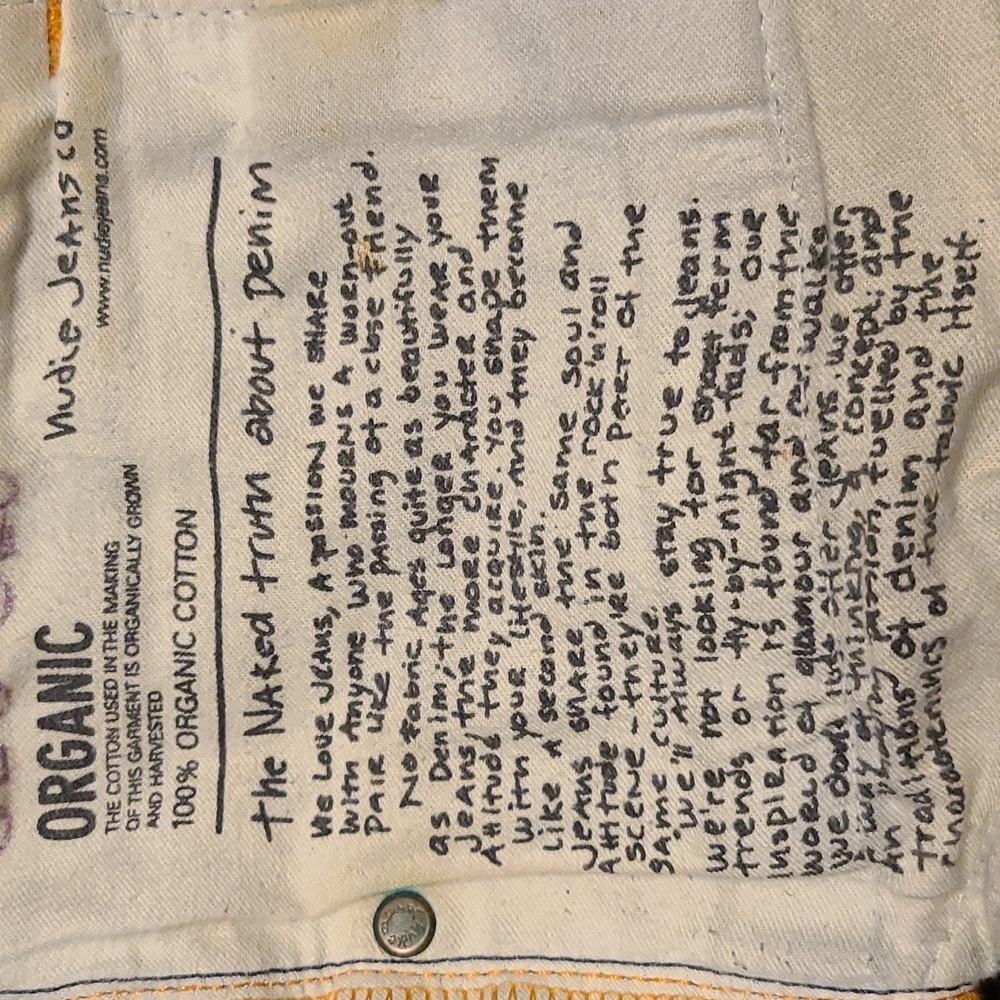 ORGANIC
THE COTTON USED IN THE MAKING
OF THIS GARMENT IS ORGANICALLY GROWN
AND HARVESTED
100% ORGANIC COTTON
nudie Jeans co
www.nudiejeans.com
the Naked truth about Denim
We Love Jeans, A passion we share
with Anyone who mourns A worn-out
pair like the passing of a close friend.
No fabric Ages quite as beautifully
as Denim; the Longer you wear your
Jeans, the more character and
Attitude they acquire. You shape them
with your lifestile, and they become
Like A second skin.
Jeans share the same soul and
attitude found in the rock'n'roll
scene - they're both part of the
same culture.
We'll Always stay true to jeans.
We're not looking for short term
trends or fly-by-night fads; our
inspiration is found far from the
world of glamour and catwalks
We don't just offer jeans. We offer
a way of thinking, a concept and
An passion, fuelled by the
traditions of denim and the
characteristics of the fabric itself.